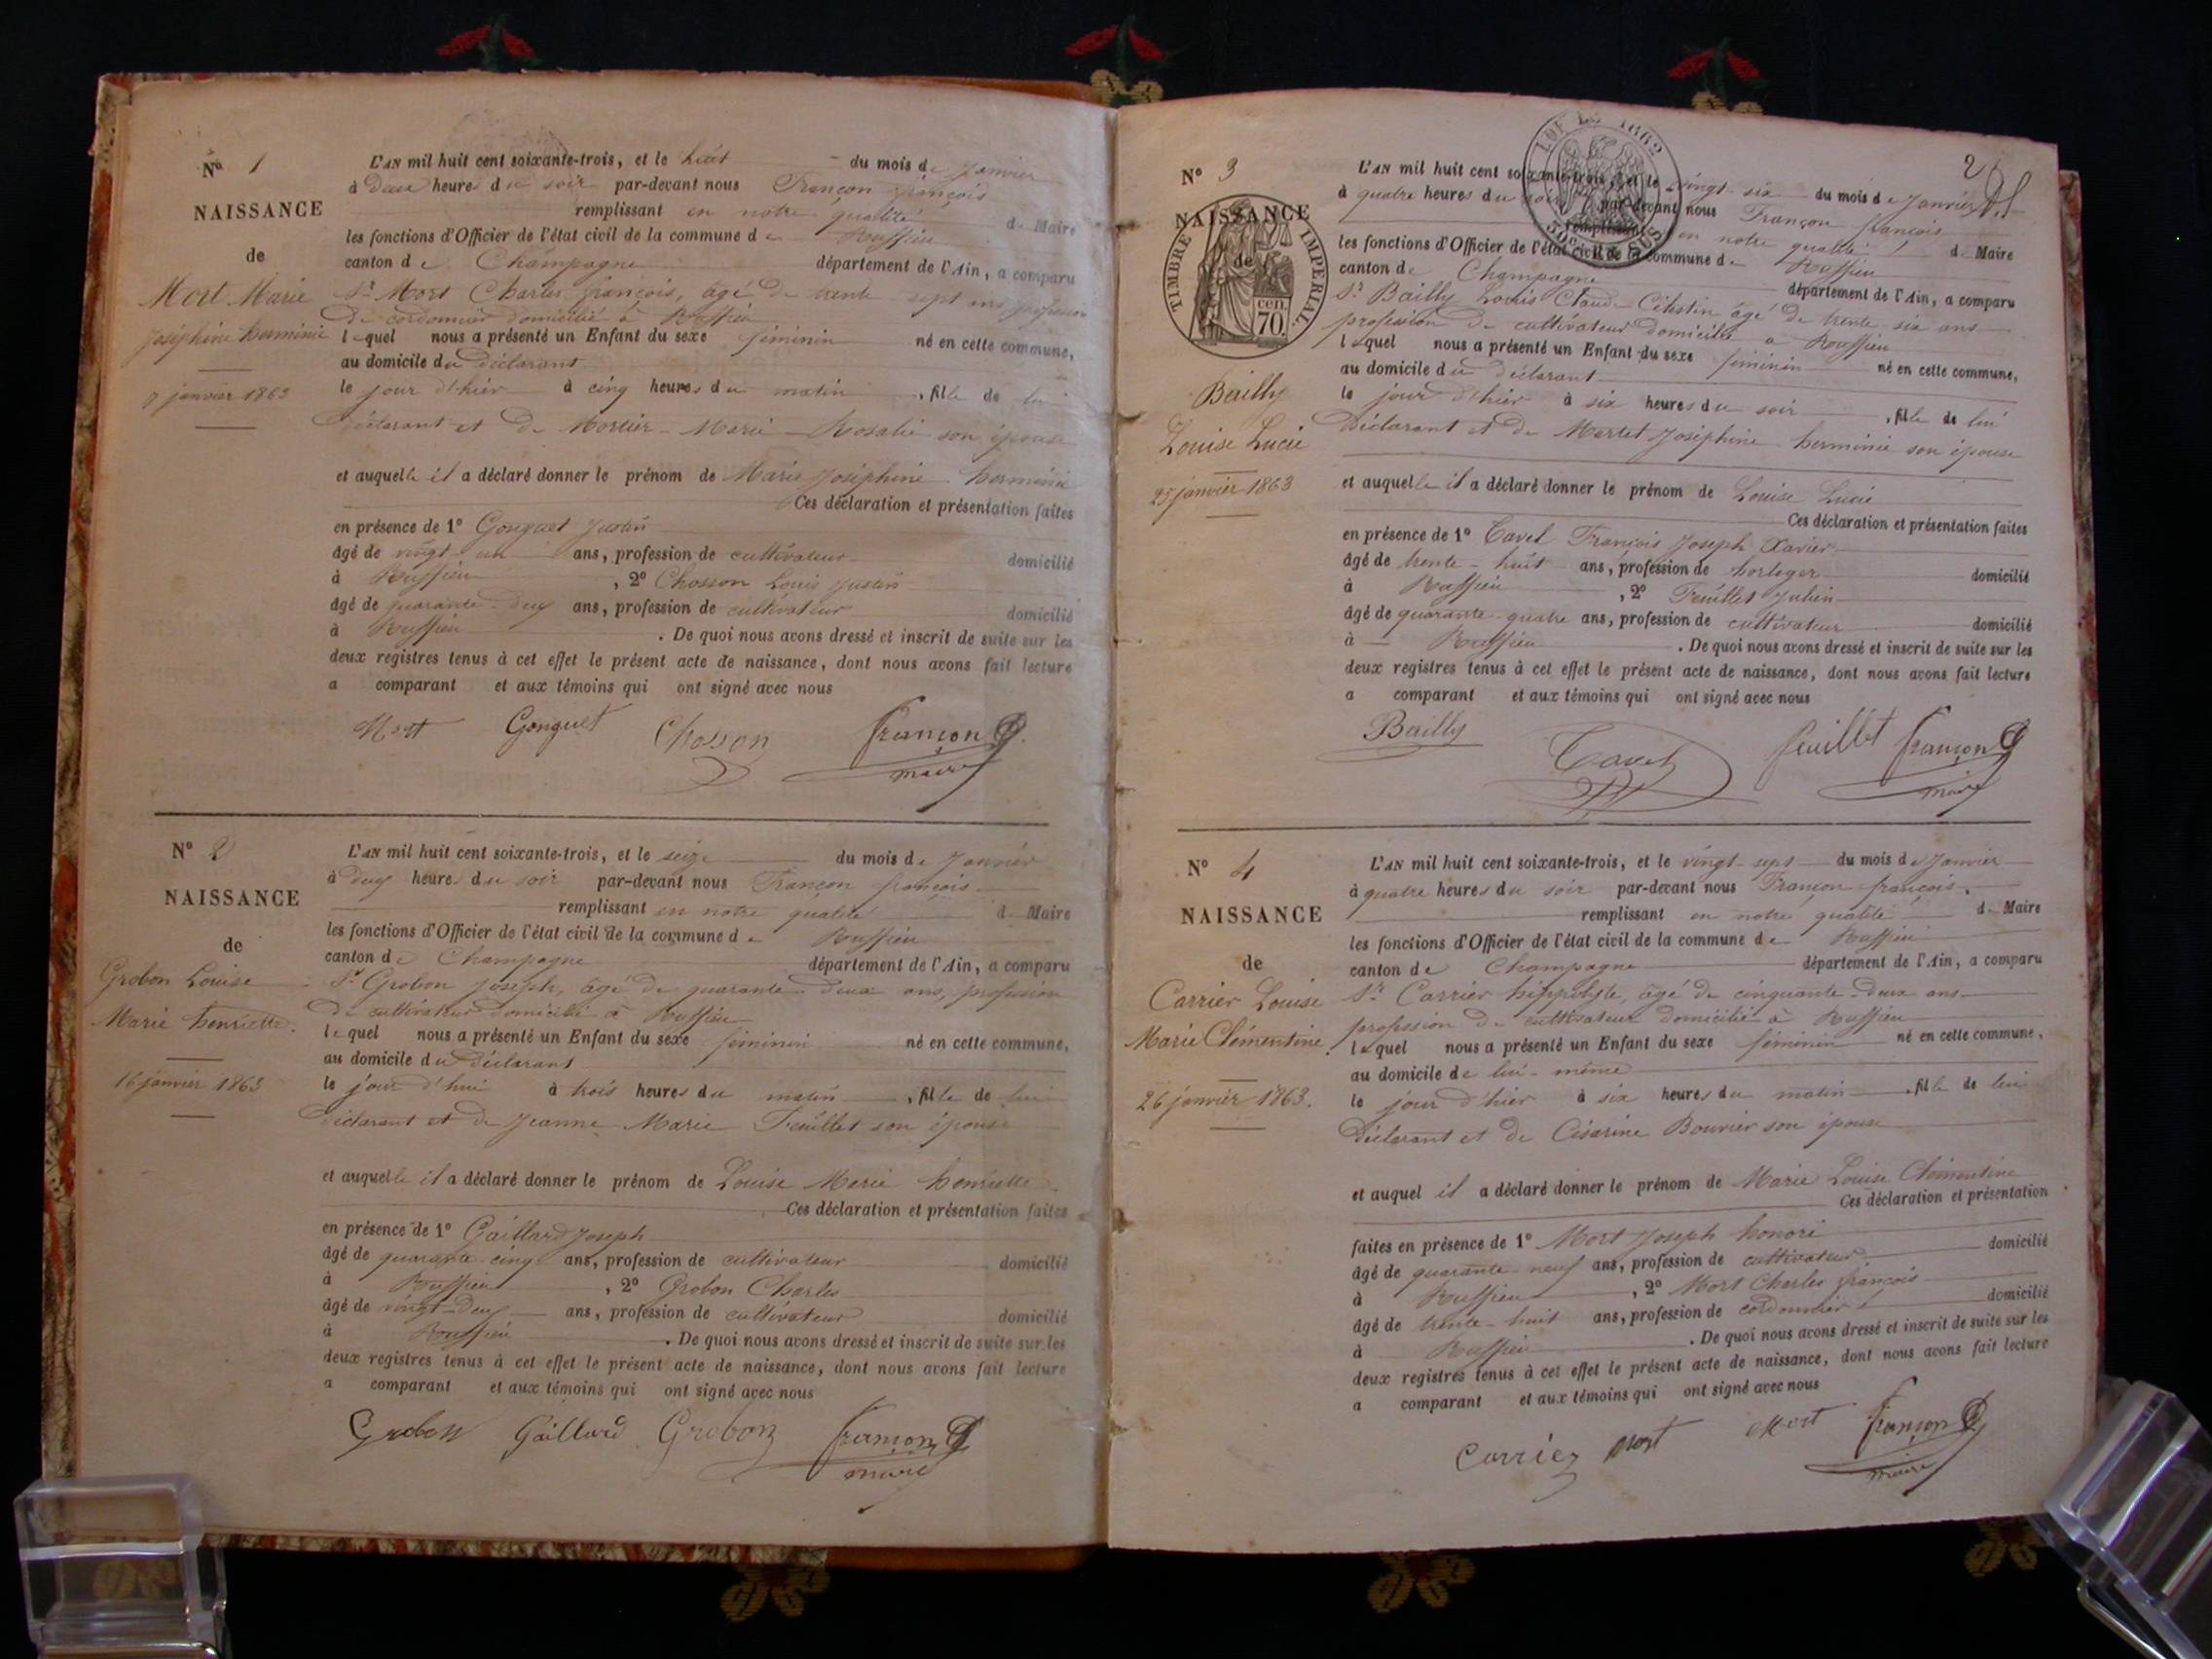 N° 1
NAISSANCE
de
Mort Marie
Joséphine herminie
7 janvier 1863
L'AN mil huit cent soixante-trois, et le huit du mois de Janvier
à deux heures du soir par-devant nous Françon françois
remplissant en notre qualité de Maire
les fonctions d'Officier de l'état civil de la commune de Ruffieu
canton de Champagne département de l'Ain, a comparu
Sr Mort Charles françois, âgé de trente sept ans, profession
de cordonnier domicilié à Ruffieu
lequel nous a présenté un Enfant du sexe féminin né en cette commune,
au domicile du déclarant
le jour d'hier à cinq heures du matin, fille de lui
déclarant et de Mortier Marie Rosalie son épouse
et auquelle il a déclaré donner le prénom de Marie Joséphine herminie
Ces déclaration et présentation faites
en présence de 1° Gonguet Justin
âgé de vingt-un ans, profession de cultivateur domicilié
à Ruffieu, 2° Chosson Louis Justin
âgé de quarante-deux ans, profession de cultivateur domicilié
à Ruffieu. De quoi nous avons dressé et inscrit de suite sur les
deux registres tenus à cet effet le présent acte de naissance, dont nous avons fait lecture
a comparant et aux témoins qui ont signé avec nous
Mort Gonguet Chosson françon
maire
N° 2
NAISSANCE
de
Grobon Louise
Marie henriette.
16 janvier 1863
L'AN mil huit cent soixante-trois, et le seize du mois de Janvier
à deux heures du soir par-devant nous Françon françois
remplissant en notre qualité de Maire
les fonctions d'Officier de l'état civil de la commune de Ruffieu
canton de Champagne département de l'Ain, a comparu
Sr Grobon Joseph, âgé de quarante-deux ans, profession
de cultivateur domicilié à Ruffieu
lequel nous a présenté un Enfant du sexe féminin né en cette commune,
au domicile du déclarant
le jour d'hui à trois heures du matin, fille de lui
déclarant et de Jeanne Marie Feuillet son épouse
et auquelle il a déclaré donner le prénom de Louise Marie henriette
Ces déclaration et présentation faites
en présence de 1° Gaillard Joseph
âgé de quarante-cinq ans, profession de cultivateur domicilié
à Ruffieu, 2° Grobon Charles
âgé de vingt-deux ans, profession de cultivateur domicilié
à Ruffieu. De quoi nous avons dressé et inscrit de suite sur les
deux registres tenus à cet effet le présent acte de naissance, dont nous avons fait lecture
a comparant et aux témoins qui ont signé avec nous
Grobon Gaillard Grobon françon
maire
2
LOI DE 1862
50c EN SUS
TIMBRE IMPERIAL
cen. 70
N° 3
NAISSANCE
de
Bailly
Louise Lucie
25 janvier 1863
L'AN mil huit cent soixante-trois, et le vingt-six du mois de Janvier
à quatre heures du soir par-devant nous Françon françois
remplissant en notre qualité de Maire
les fonctions d'Officier de l'état civil de la commune de Ruffieu
canton de Champagne département de l'Ain, a comparu
Sr Bailly Louis Claude Célestin âgé de trente six ans
profession de cultivateur domicilié à Ruffieu
lequel nous a présenté un Enfant du sexe féminin né en cette commune,
au domicile du déclarant
le jour d'hier à six heures du soir, fille de lui
déclarant et de Martet Joséphine herminie son épouse
et auquelle il a déclaré donner le prénom de Louise Lucie
Ces déclaration et présentation faites
en présence de 1° Tavel François Joseph Xavier
âgé de trente-huit ans, profession de horloger domicilié
à Ruffieu, 2° Feuillet Julien
âgé de quarante-quatre ans, profession de cultivateur domicilié
à Ruffieu. De quoi nous avons dressé et inscrit de suite sur les
deux registres tenus à cet effet le présent acte de naissance, dont nous avons fait lecture
a comparant et aux témoins qui ont signé avec nous
Bailly Tavel feuillet françon
maire
N° 4
NAISSANCE
de
Carrier Louise
Marie Clémentine.
26 janvier 1863.
L'AN mil huit cent soixante-trois, et le vingt-sept du mois de Janvier
à quatre heures du soir par-devant nous Françon françois.
remplissant en notre qualité de Maire
les fonctions d'Officier de l'état civil de la commune de Ruffieu
canton de Champagne département de l'Ain, a comparu
Sr Carrier hippolyte, âgé de cinquante-deux ans
profession de cultivateur domicilié à Ruffieu
lequel nous a présenté un Enfant du sexe féminin né en cette commune,
au domicile de lui-même
le jour d'hier à six heures du matin, fille de lui
déclarant et de Césarine Bouvier son épouse
et auquel il a déclaré donner le prénom de Marie Louise Clémentine
Ces déclaration et présentation
faites en présence de 1° Mort Joseph honoré
âgé de quarante-neuf ans, profession de cultivateur domicilié
à Ruffieu, 2° Mort Charles françois
âgé de trente-huit ans, profession de cordonnier domicilié
à Ruffieu. De quoi nous avons dressé et inscrit de suite sur les
deux registres tenus à cet effet le présent acte de naissance, dont nous avons fait lecture
a comparant et aux témoins qui ont signé avec nous
Carrier Mort Mort françon
maire